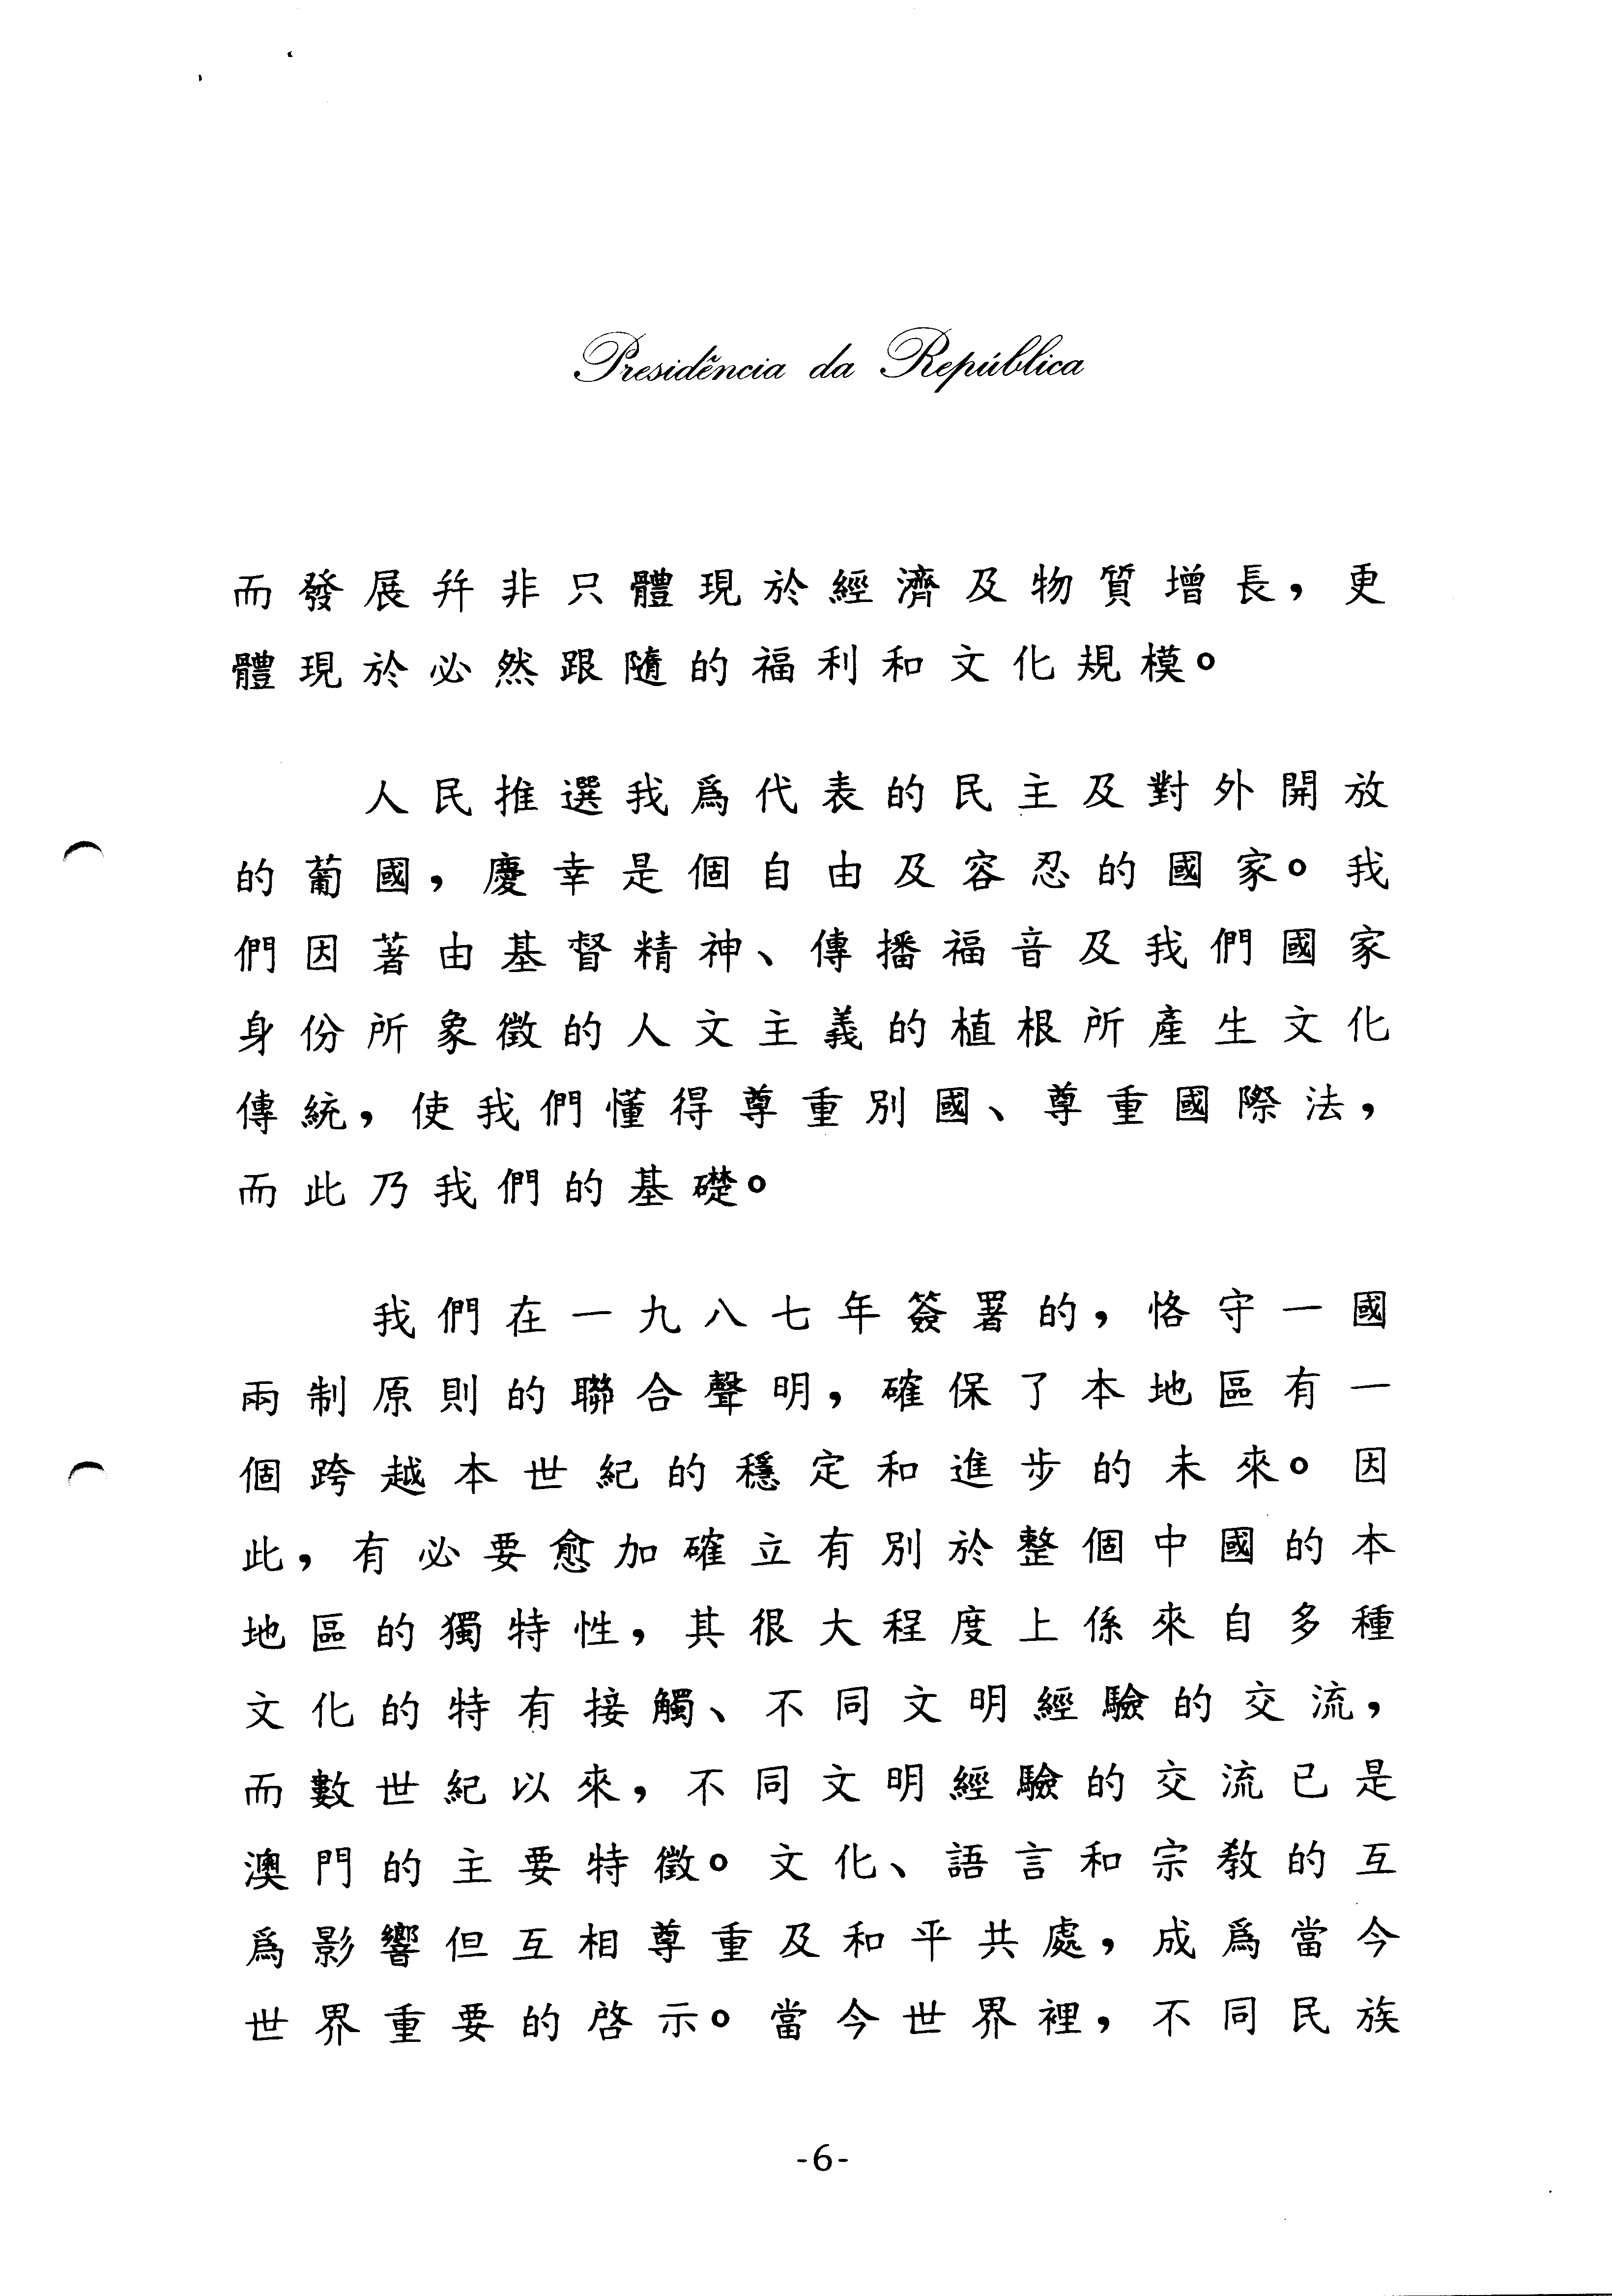 Presidência da República
而發展幷非只體現於經濟及物質增長，更
體現於必然跟隨的福利和文化規模。
人民推選我爲代表的民主及對外開放
的葡國，慶幸是個自由及容忍的國家。我
們因著由基督精神、傳播福音及我們國家
身份所象徵的人文主義的植根所產生文化
傳統，使我們懂得尊重別國、尊重國際法，
而此乃我們的基礎。
我們在一九八七年簽署的，恪守一國
兩制原則的聯合聲明，確保了本地區有一
個跨越本世紀的穩定和進步的未來。因
此，有必要愈加確立有別於整個中國的本
地區的獨特性，其很大程度上係來自多種
文化的特有接觸、不同文明經驗的交流，
而數世紀以來，不同文明經驗的交流已是
澳門的主要特徵。文化、語言和宗教的互
爲影響但互相尊重及和平共處，成爲當今
世界重要的啓示。當今世界裡，不同民族
-6-